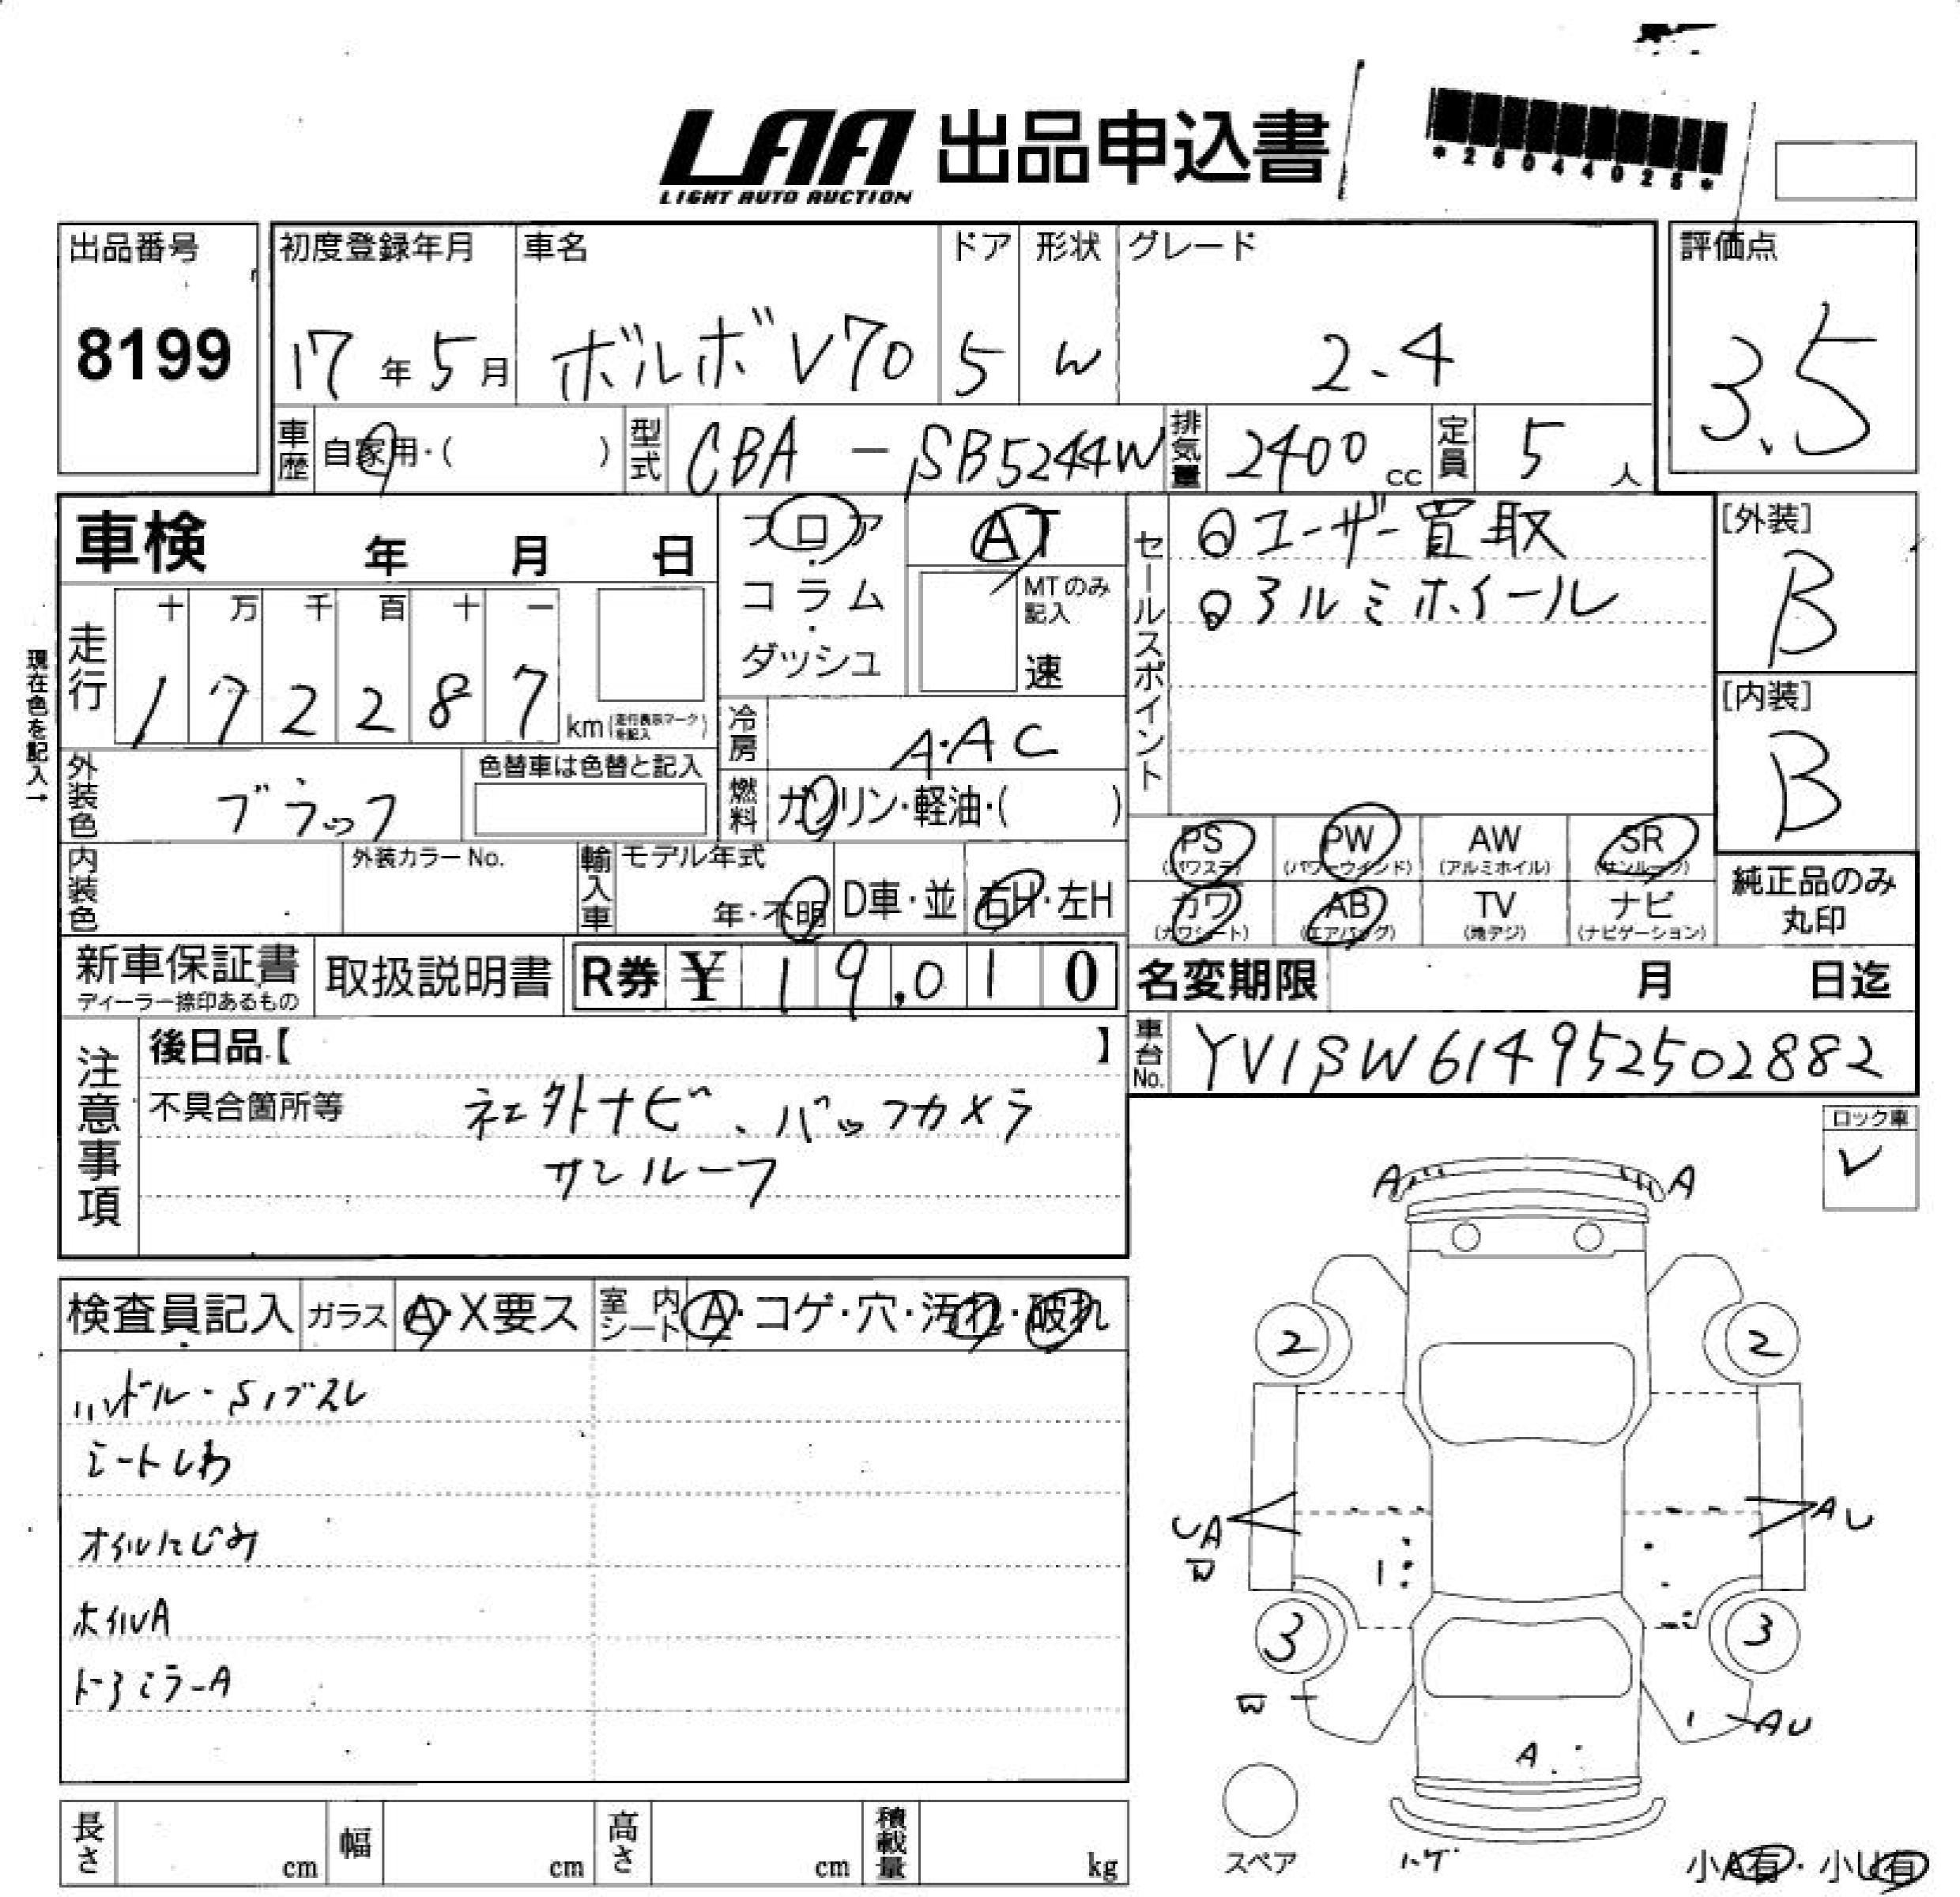 LAA 出品申込書
LIGHT AUTO AUCTION
*25044025*
出品番号
8199
初度登録年月 車名 ドア 形状 グレード
17年5月 ボルボV70 5 W 2.4
評価点
3.5
車歴 自家用・( ) 型式 CBA-SB5244W 排気量 2400cc 定員 5人
車検 年 月 日
フロア・コラム・ダッシュ
AT
MTのみ記入
速
セールスポイント
◎ユーザー買取
◎アルミホイール
[外装]
B
[内装]
B
現在色を記入→
走行
十 万 千 百 十 一
172287 km(走行表示マークを記入)
冷房 A.AC
外装色 ブラック
色替車は色替と記入
燃料 ガソリン・軽油・( )
内装色
外装カラーNo.
輸入車 モデル年式
年・不明 D車・並 右H・左H
PS (パワステ) PW (パワーウインド) AW (アルミホイル) SR (サンルーフ)
カワ (カワシート) AB (エアバッグ) TV (地デジ) ナビ (ナビゲーション)
純正品のみ丸印
新車保証書
ディーラー捺印あるもの
取扱説明書
R券 ¥19,010
名変期限 月 日迄
車台No. YV1SW614952502882
注意事項
後日品【 】
不具合箇所等 社外ナビ、バックカメラ
サンルーフ
ロック車
レ
検査員記入 ガラス A・X要ス 室内シート A・コゲ・穴・汚れ・破れ
シートしわ
オイルにじみ
ホイルA
ドアミラーA
A A
2 2
UA AU
W
1
3 3
W
1 AU
A
スペア
ハゲ
小A有・小U有
長さ cm 幅 cm 高さ cm 積載量 kg